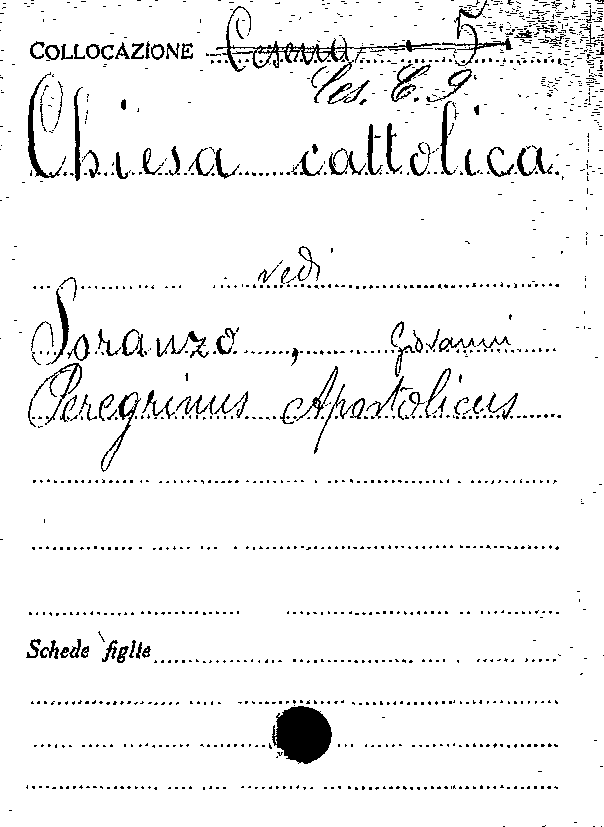 COLLOCAZIONE Cesena . 5
Ces. C. 9
Chiesa cattolica
vedi
Soranzo, Giovanni
Peregrinus Apostolicus
Schede figlie